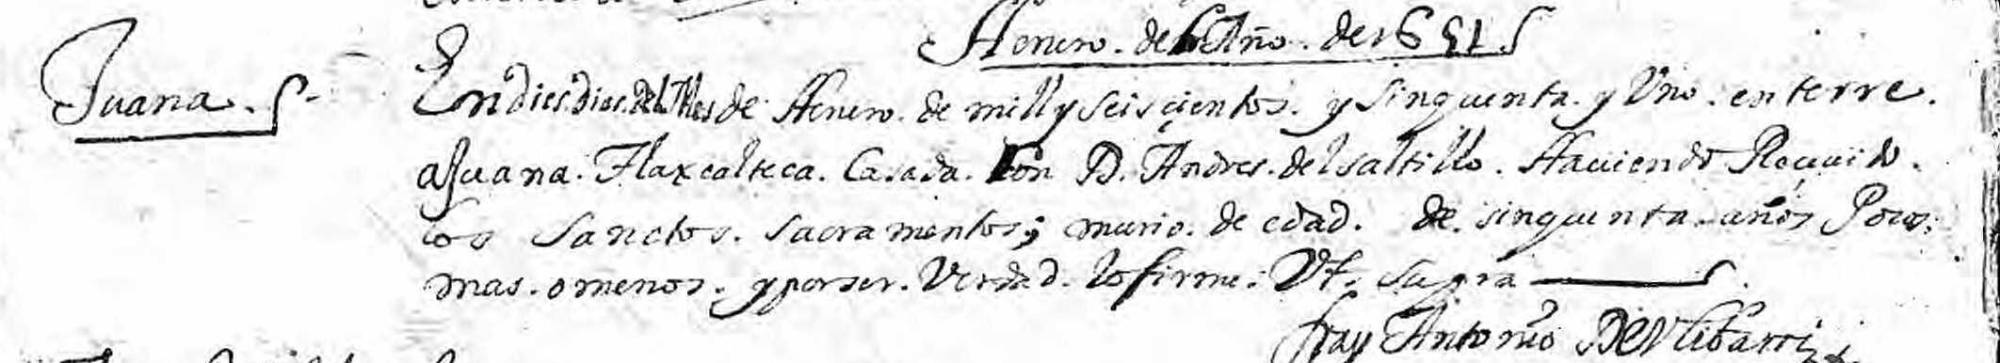 Henero. del Año. de 1651
Juana.
En dies dias. del Mes de Henero. de mill y seisçientos. y sinquenta. y Vno. enterre.
a Juana. Tlaxcalteca. Casada. Con D. Andres. del saltillo. Hauiendo Reçiuido.
los Sanctos. sacramentos; murio. de edad. de. sinquenta. años Poco.
mas. o menos. y por ser. Verdad. lo firme. Vt. supra
fray Antonio De Vlibarri